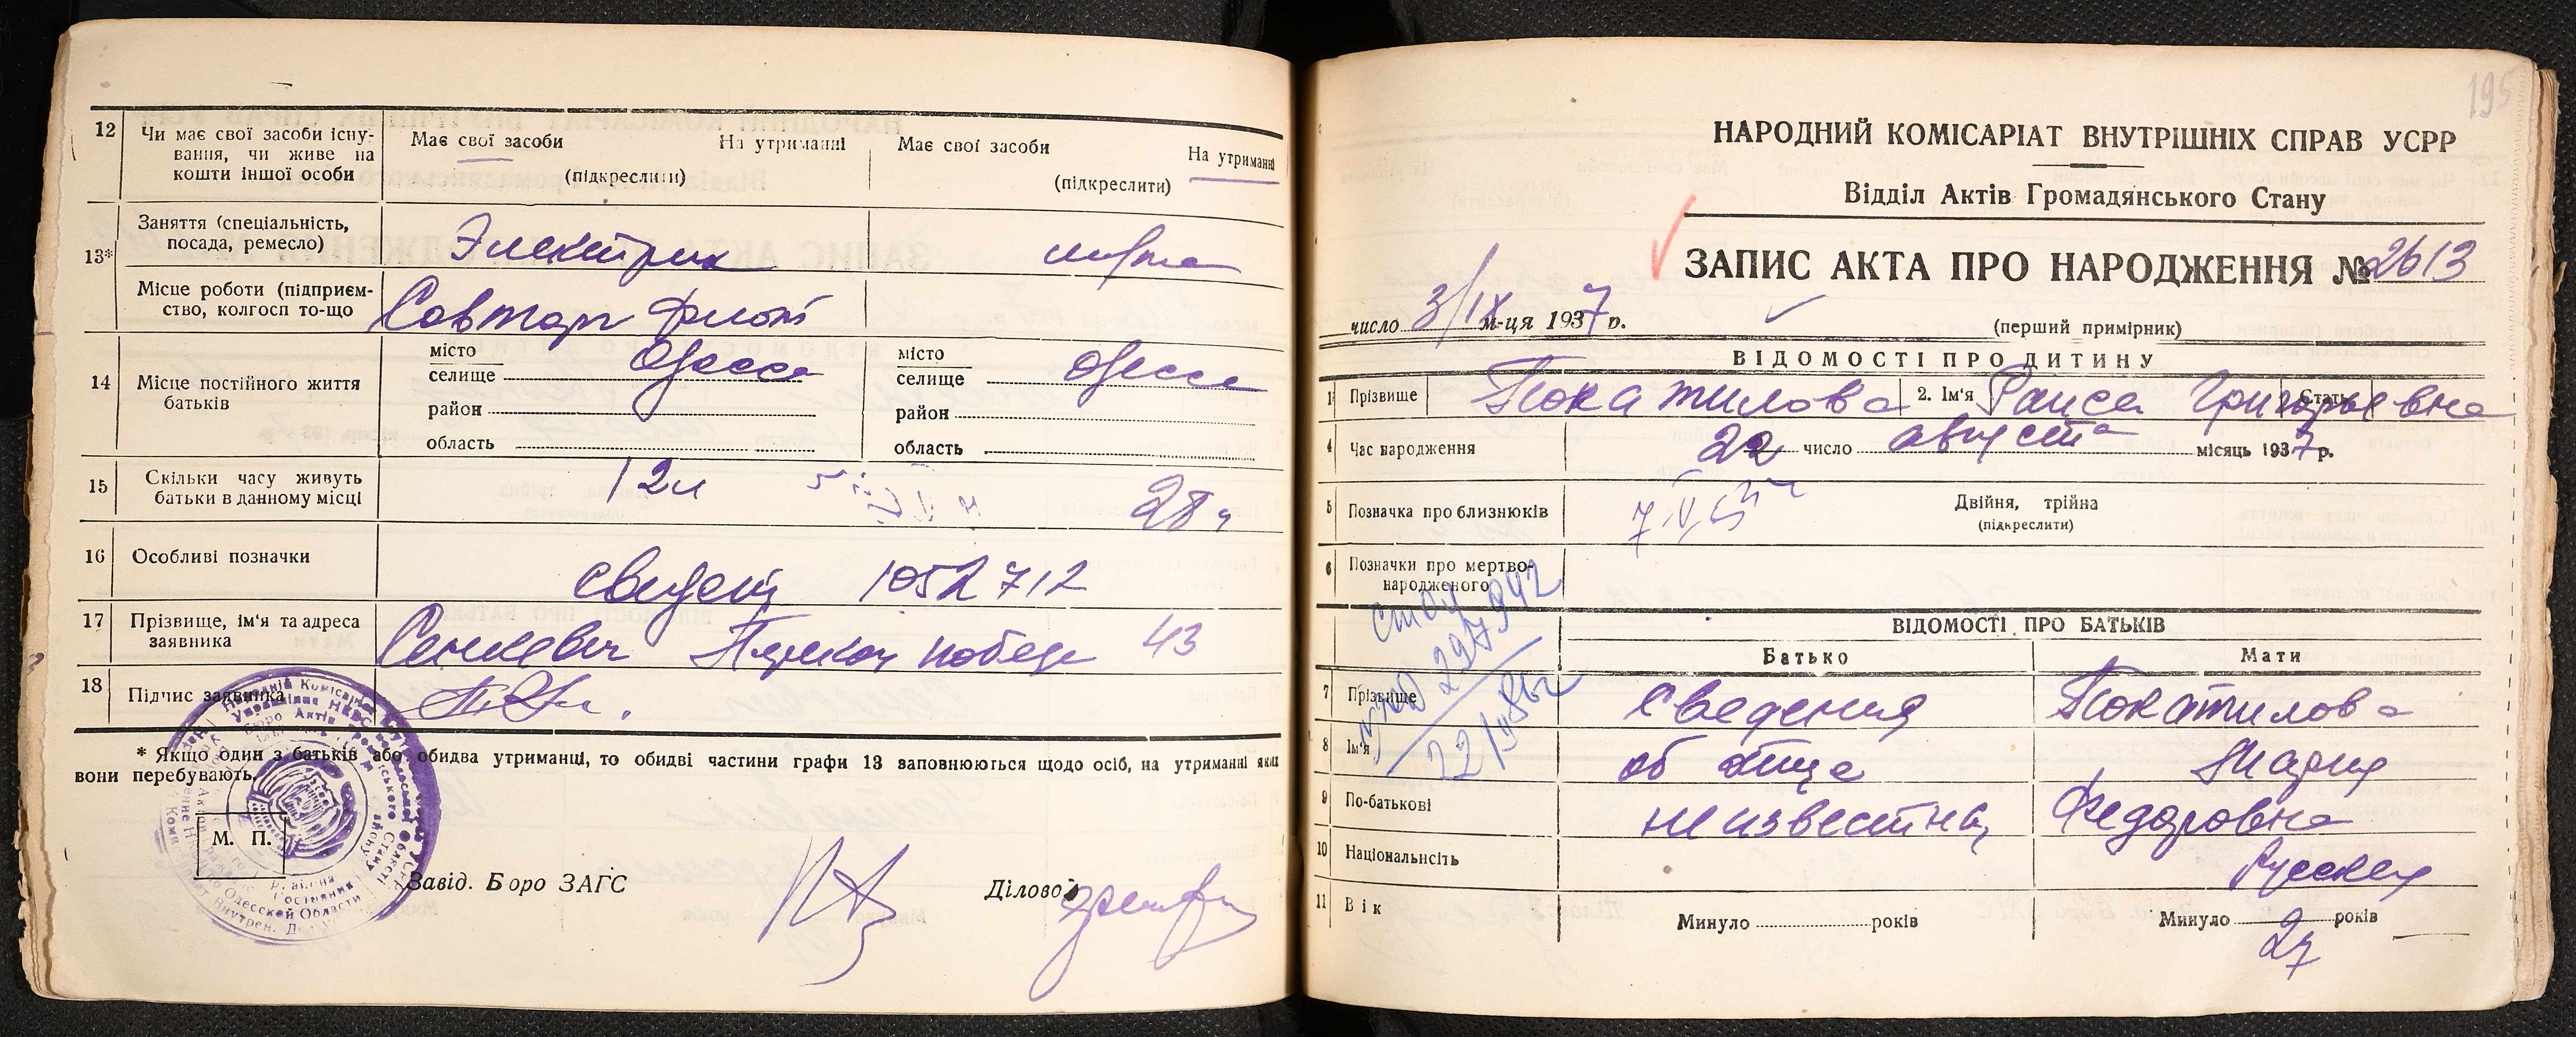 12
Чи має свої засоби існу-
вання, чи живе на
кошти іншої особи
Має свої засоби На утриманні
(підкреслити)
Має свої засоби На утриманні
(підкреслити)
13*
Заняття (спеціальність,
посада, ремесло)
Электрик
Місце роботи (підприєм-
ство, колгосп то-що
Совторг флот
14
Місце постійного життя
батьків
місто
селище Одесса
район
область
місто
селище Одесса
район
область
15
Скільки часу живуть
батьки в данному місці
12 л
16
Особливі позначки
свидет 1052712
17
Прізвище, ім'я та адреса
заявника
Сенкевич победы 43
18
Підпис заявника
* Якщо один з батьків або обидва утриманці, то обидві частини графи 13 заповнюються щодо осіб, на утриманні яких
вони перебувають.
М. П.
Завід. Бюро ЗАГС
Діловод
195
НАРОДНИЙ КОМІСАРІАТ ВНУТРІШНІХ СПРАВ УСРР
Відділ Актів Громадянського Стану
ЗАПИС АКТА ПРО НАРОДЖЕННЯ № 2613
число 3/IX м-ця 1937 р.
(перший примірник)
ВІДОМОСТІ ПРО ДИТИНУ
1 Прізвище Покатилова 2. Ім'я Раиса Григорьевна Стать
4 Час народження 22 число августа місяць 1937 р.
5 Позначка про близнюків
Двійня, трійна
(підкреслити)
6 Позначки про мертво-
народженого
297942
ВІДОМОСТІ ПРО БАТЬКІВ
Батько Мати
7 Прізвище Сведения Покатилова
8 Ім'я об отце Мария
9 По-батькові неизвестны, Федоровна
10 Національність Русская
11 Вік
Минуло років
Минуло 27 років